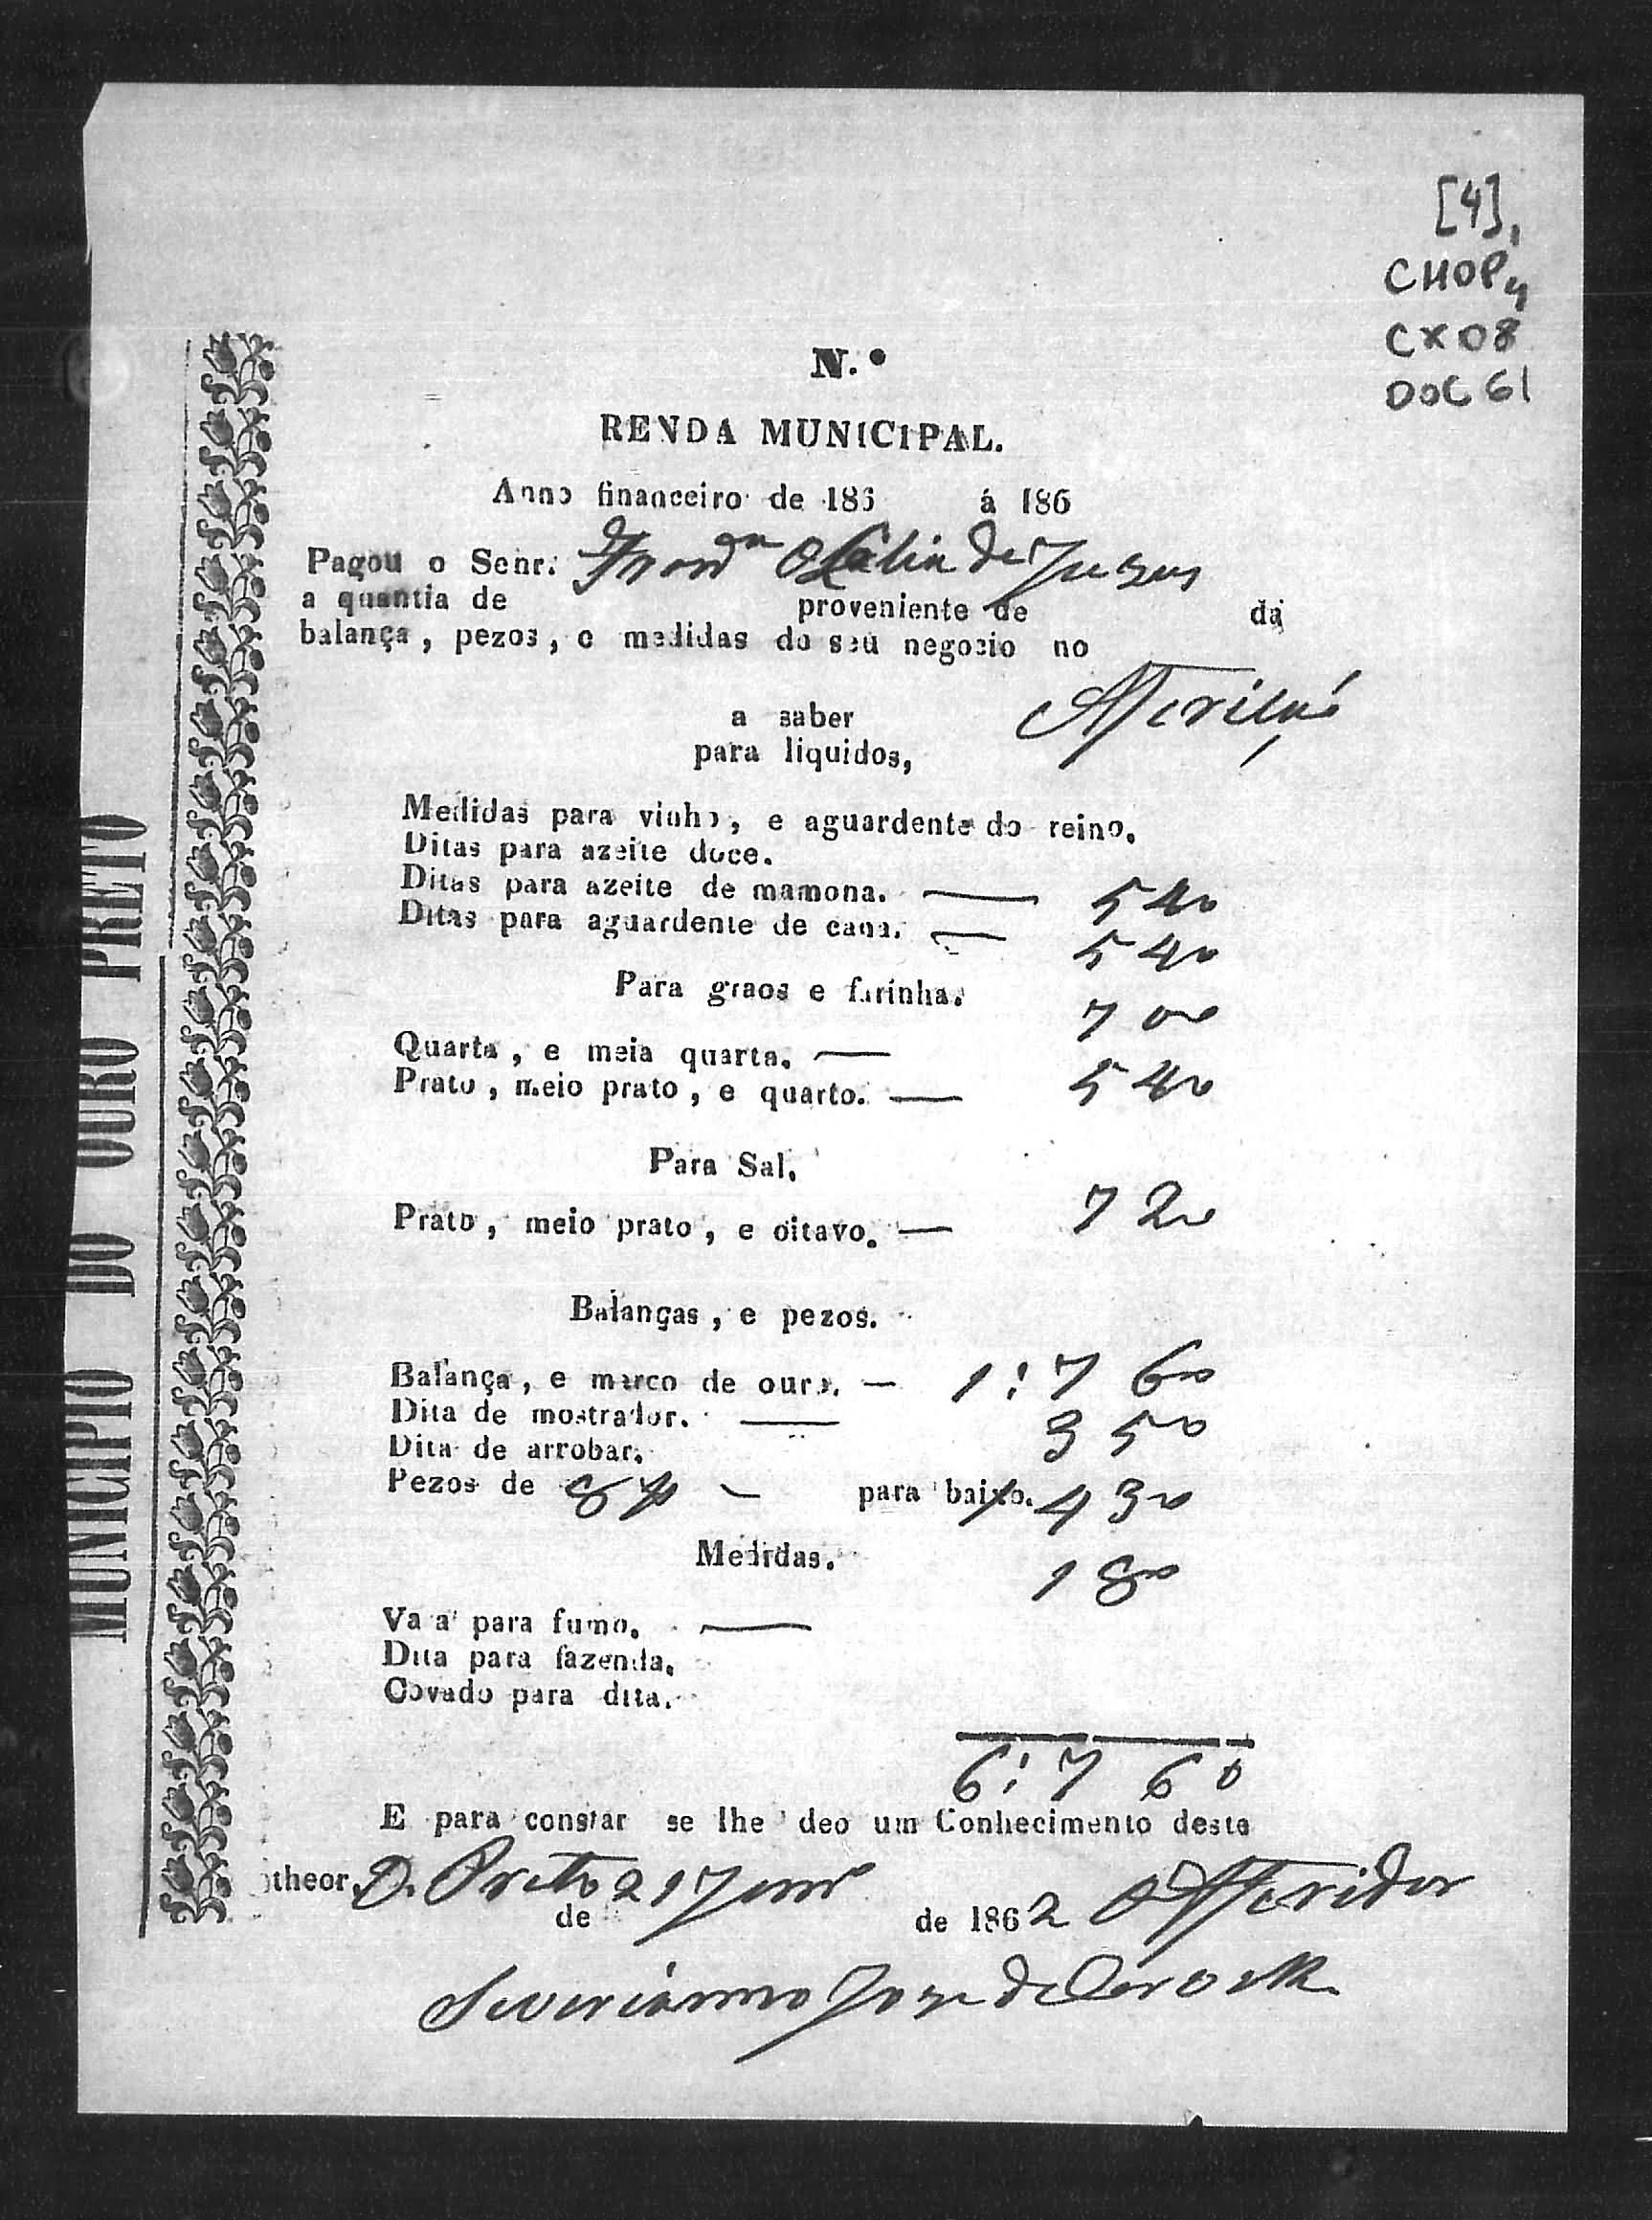 [4],
CHOP,
CX 08
DOC 61
MUNICIPIO DO OURO PRETO
N.º
RENDA MUNICIPAL.
Anno financeiro de 186 á 186
Pagou o Senr. de Jesus
a quantia de proveniente de da
balança, pezos, e medidas do seu negocio no
a saber
para liquidos,
Medidas para vinho, e aguardente do reino.
Ditas para azeite doce.
Ditas para azeite de mamona. — 540
Ditas para aguardente de cana. — 540
Para graos e farinha.
Quarta, e meia quarta. — 700
Prato, meio prato, e quarto. — 540
Para Sal.
Prato, meio prato, e oitavo. — 720
Balanças, e pezos.
Balança, e marco de ouro. — 1:760
Dita de mostrador. — 350
Dita de arrobar.
Pezos de 8 — para baixo. 1430
Medidas.
Vara para fumo. — 180
Dita para fazenda.
Covado para dita.
6:760
E para constar se lhe deo um Conhecimento deste
theor. O. Preto 21 de Janrº de 1862 O Afferidor
Severianno Joze de